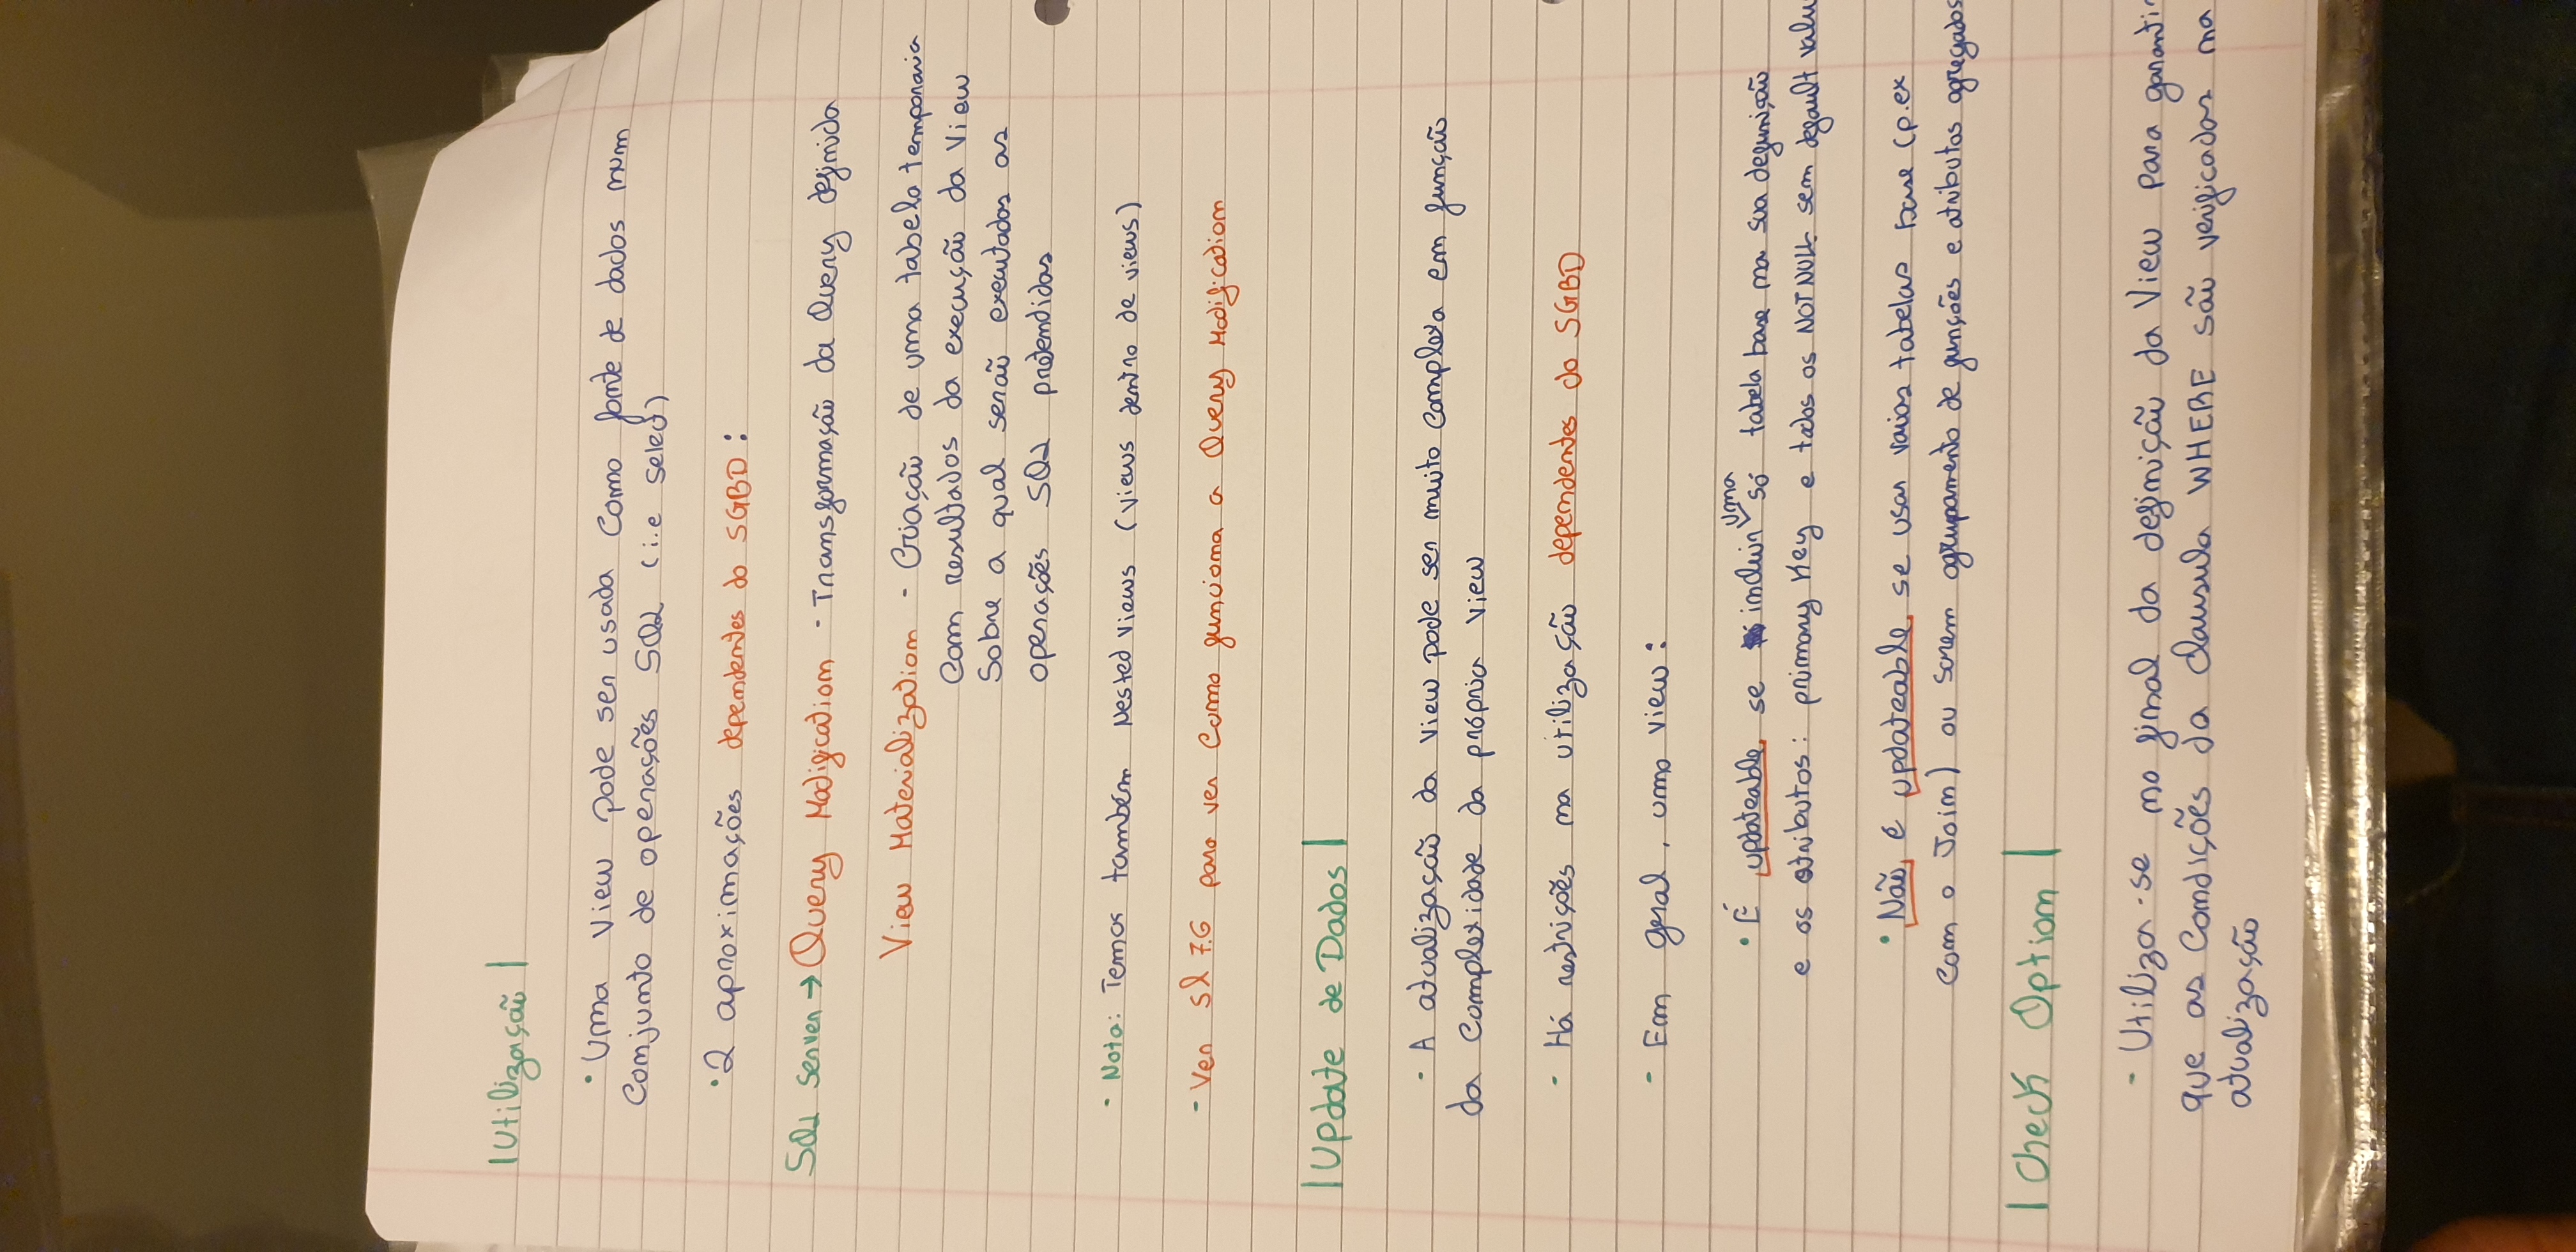 |Utilização|
• Uma View pode ser usada como fonte de dados num
conjunto de operações SQL (i.e select)
• 2 aproximações dependentes do SGBD:
SQL Server → Query Modification - Transformação da Query definida
View Materialization - Criação de uma tabela temporaria
com resultados da execução da View
Sobre a qual serão executados as
operações SQL pretendidas
- Nota: Temos também Nested Views (views dentro de views)
- Ver Sl 7.6 para ver como funciona a Query Modification
|Update de Dados|
- A atualização da view pode ser muito complexa em função
da complexidade da própria view
- Há restrições na utilização dependentes do SGBD
- Em geral, uma view:
• É updateable se incluir uma só tabela base na sua defunição
e os atributos: primary Key e todos os NOT NULL sem default valu
• Não é updateable se usar varias tabelas base (p.ex
com o Join) ou agrupamento de funções e atributos agregados
|Check Option|
- Utiliza-se no final da definição da View para garantir
que as condições da clausula WHERE são verificadas na
atualização